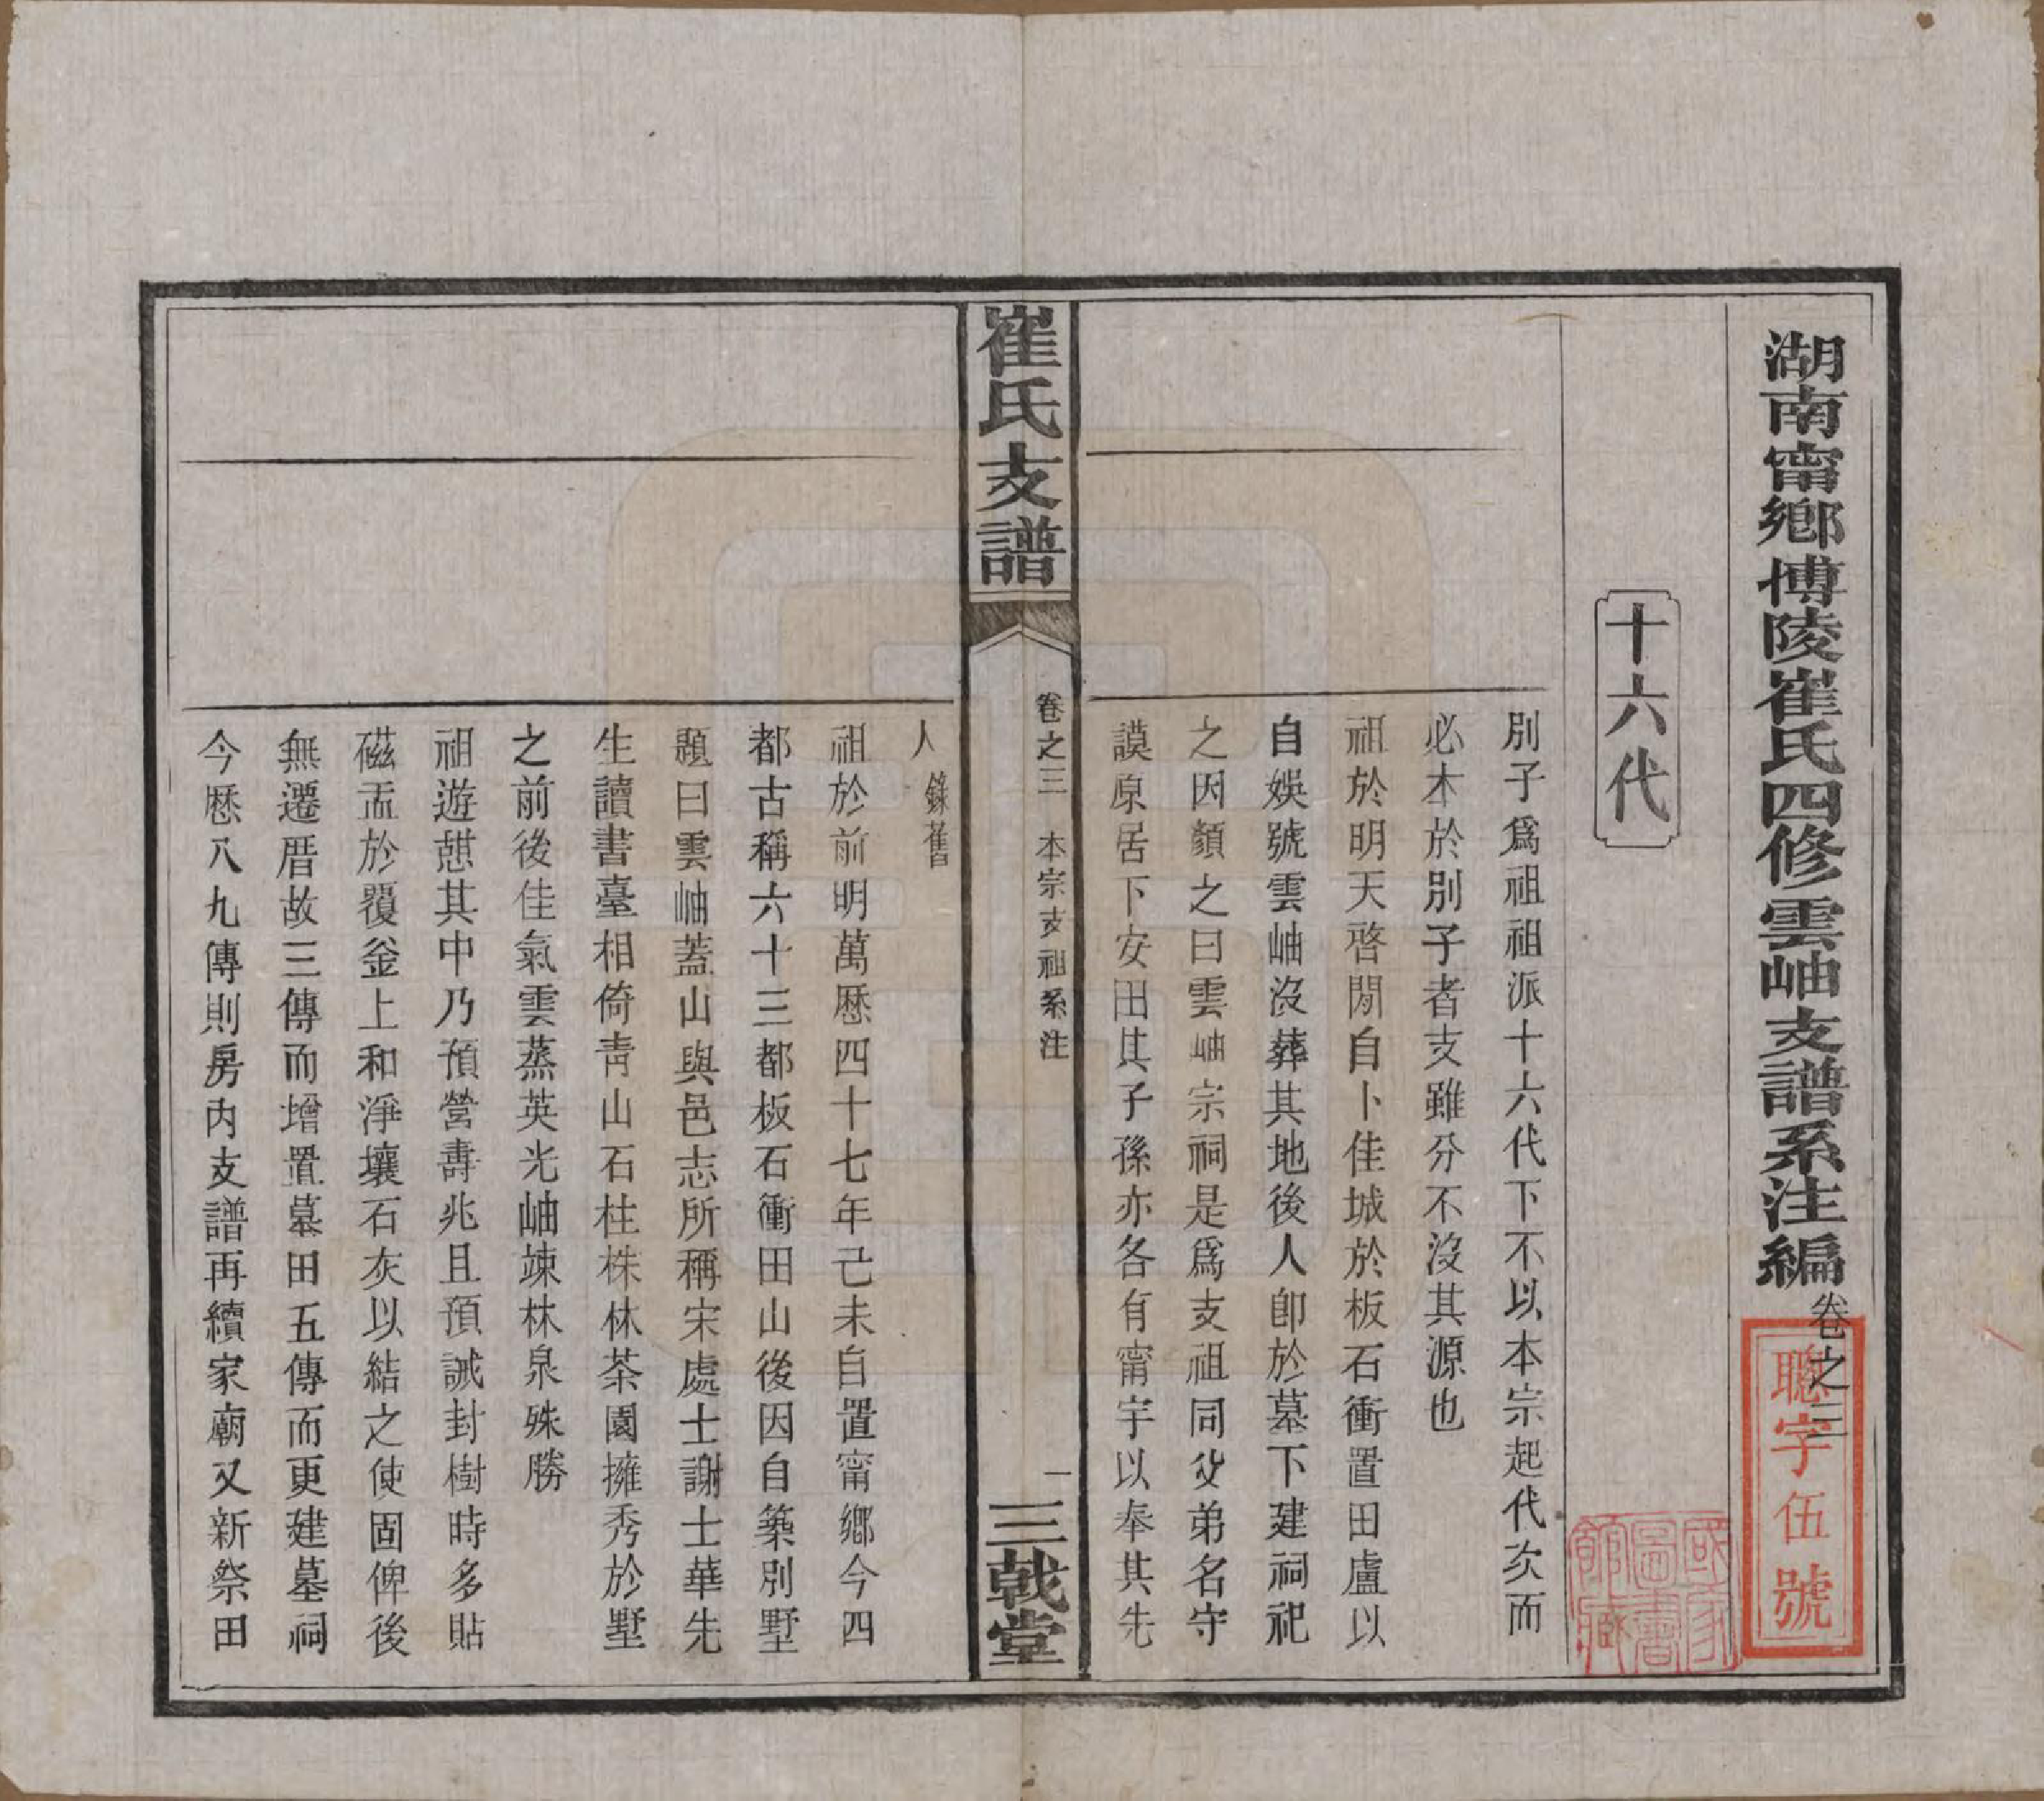 湖南甯鄉博陵崔氏四修雲岫支譜系注編卷之三
聰字伍號
國家圖書館藏
十六代
別子爲祖祖派十六代下不以本宗起代次而
必本於別子者支雖分不沒其源也
祖於明天啓閒自卜佳城於板石衝置田盧以
自娛號雲岫沒葬其地後人卽於墓下建祠祀
之因顏之曰雲岫宗祠是爲支祖同父弟名守
謨原居下安田其子孫亦各有甯宇以奉其先
崔氏支譜
卷之三 本宗支祖系注
一
三戟堂
人錄舊
祖於前明萬厯四十七年己未自置甯鄉今四
都古稱六十三都板石衝田山後因自築別墅
題曰雲岫蓋山與邑志所稱宋處士謝士華先
生讀書臺相倚靑山石柱株林茶園擁秀於墅
之前後佳氣雲蒸英光岫竦林泉殊勝
祖遊憇其中乃預營壽兆且預誡封樹時多貼
磁盂於覆釜上和淨壤石灰以結之使固俾後
無遷厝故三傳而增置墓田五傳而更建墓祠
今厯八九傳則房內支譜再續家廟又新祭田